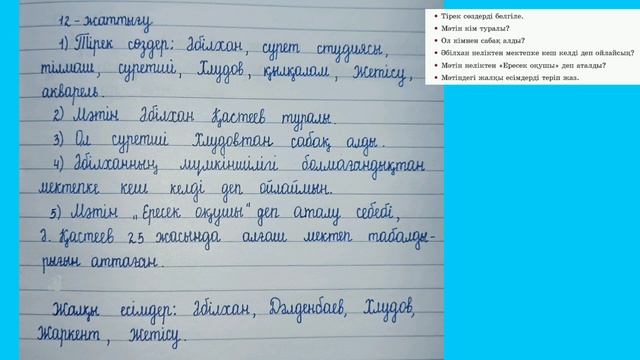 12 - жаттығу
1) Тірек сөздер: Әбілхан, сурет студиясы,
тілмаш, суретші, Хлудов, қылқалам, Жетісу,
акварель.
2) Мәтін Әбілхан Қастеев туралы.
3) Ол суретші Хлудовтан сабақ алды.
4) Әбілханның мүмкіншілігі болмағандықтан
мектепке кеш келді деп ойлаймын.
5) Мәтін „Ересек оқушы“ деп аталу себебі,
Ә. Қастеев 25 жасында алғаш мектеп табалды-
рығын аттаған.
Жалқы есімдер: Әбілхан, Дәлденбаев, Хлудов,
Жаркент, Жетісу.
• Тірек сөздерді белгіле.
• Мәтін кім туралы?
• Ол кімнен сабақ алды?
• Әбілхан неліктен мектепке кеш келді деп ойлайсың?
• Мәтін неліктен «Ересек оқушы» деп аталды?
• Мәтіндегі жалқы есімдерді теріп жаз.